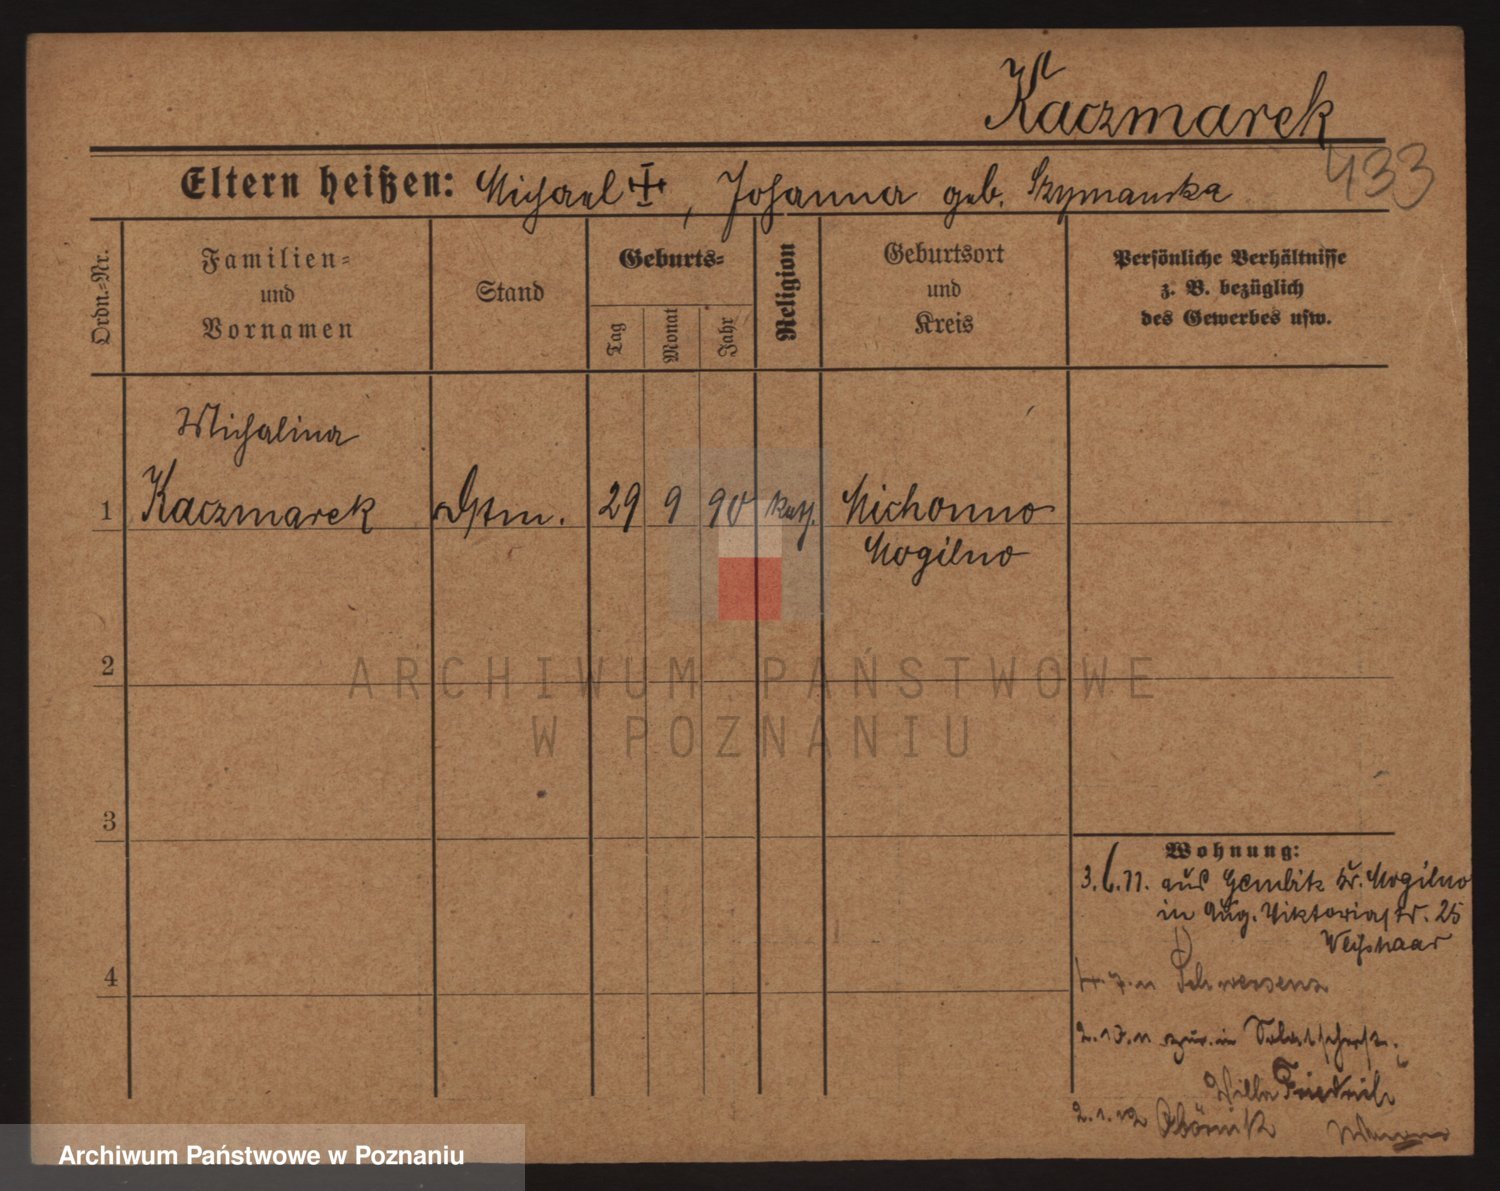 Kaczmarek
433
Eltern heißen: Michael ‡, Johanna geb. Szymanska
Ordn.-Nr.
Familien-
und
Vornamen
Stand
Geburts-
Tag
Monat
Jahr
Religion
Geburtsort
und
Kreis
Persönliche Verhältnisse
z. B. bezüglich
des Gewerbes usw.
Michalina
1 Kaczmarek 29 9 90 kath. Michonno
Mogilno
2
ARCHIWUM PAŃSTWOWE
W POZNANIU
3
Wohnung:
3.6.11. aus Gembitz Kr. Mogilno
in Aug. Viktoriastr. 25
4
4.7.11 Schwersenz
2.10.11 zur. in
Villa Friedrich
2.1.12 Obornik
Archiwum Państwowe w Poznaniu